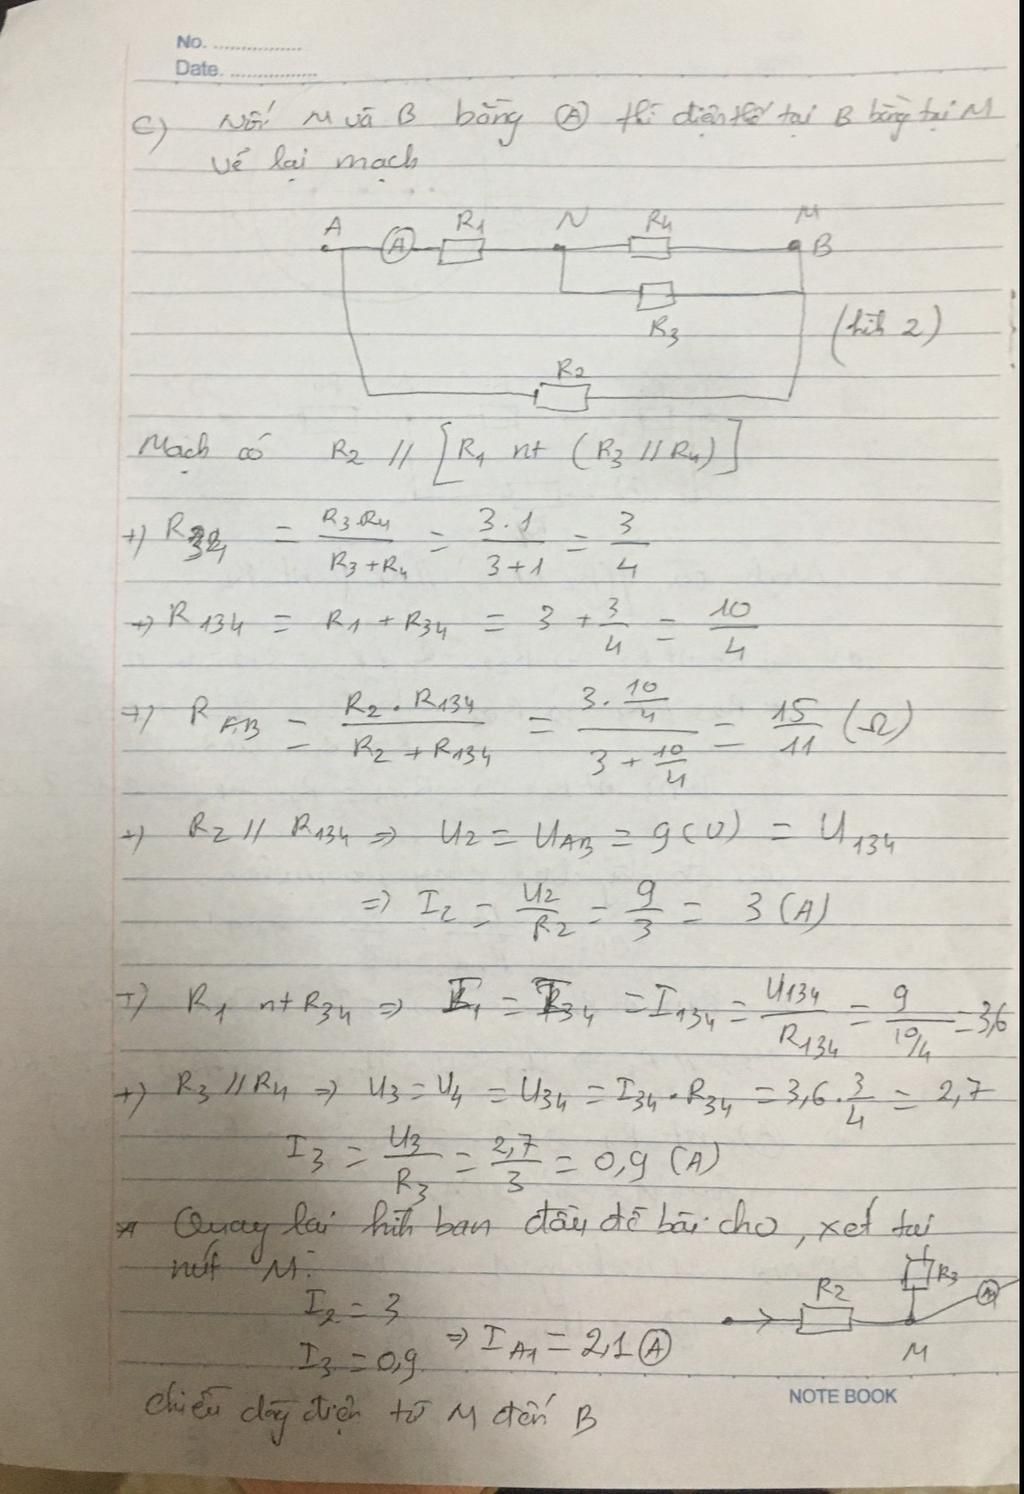 No. ................
Date. ................
c) Nối M và B bằng (A) thì điện thế tại B bằng tại M
vẽ lại mạch
A (A) R1 N R4 M B
R3
(hình 2)
R2
Mạch có R2 // [R1 nt (R3 // R4)]
+) R34 = R3.R4 / R3+R4 = 3.1 / 3+1 = 3/4
+) R134 = R1 + R34 = 3 + 3/4 = 10/4
+) RAB = R2.R134 / R2+R134 = 3.10/4 / 3+10/4 = 15/11 (Ω)
+) R2 // R134 => U2 = UAB = 9(V) = U134
=> I2 = U2/R2 = 9/3 = 3 (A)
+) R1 nt R34 => I1 = I34 = I134 = U134/R134 = 9 / 10/4 = 3,6
+) R3 // R4 => U3 = U4 = U34 = I34.R34 = 3,6.3/4 = 2,7
I3 = U3/R3 = 2,7/3 = 0,9 (A)
* Quay lại hình ban đầu đề bài cho, xét tại
nút M:
R2 R3 (A1)
I2 = 3
I3 = 0,9 => IA1 = 2,1 (A)
M
NOTE BOOK
chiều dòng điện từ M đến B